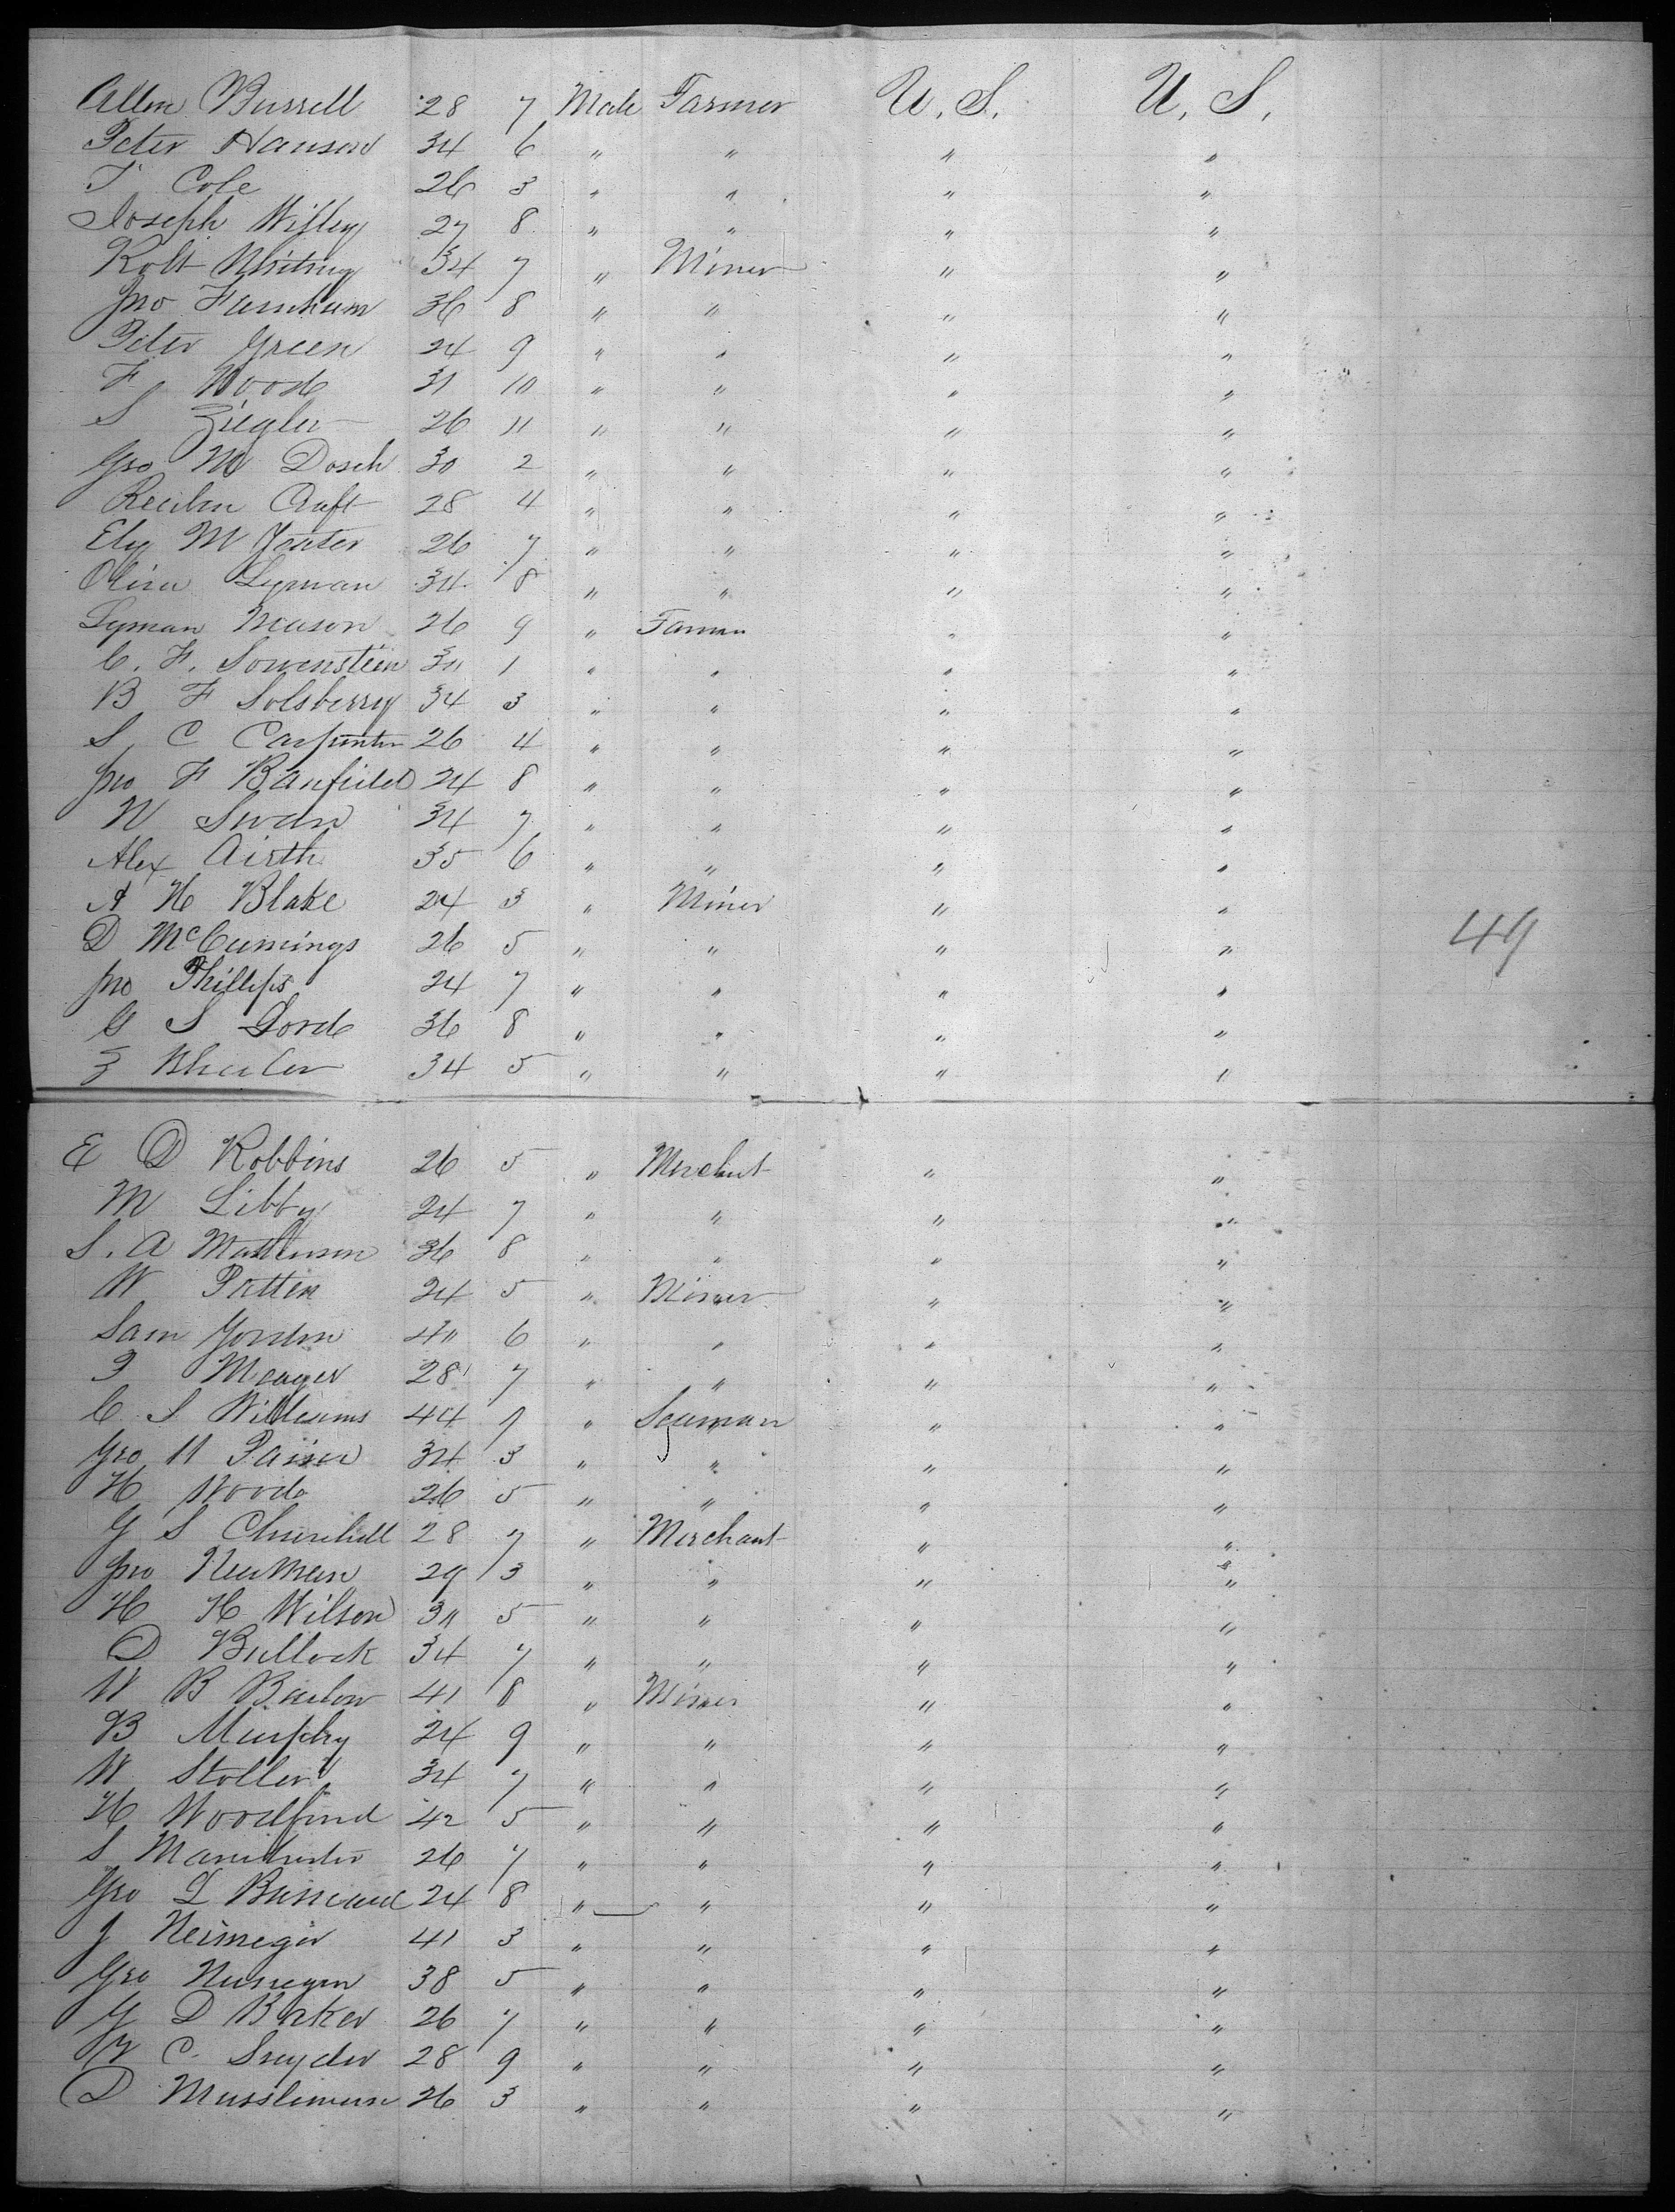 Allen Burrell 28 7 Male Farmer U. S. U. S.
Peter Hanson 34 6 " " " "
T Cole 26 3 " " " "
Joseph Wifley 27 8 " " " "
Robt Whiting 34 7 " Miner " "
Jno Farnham 36 8 " " " "
Peter Green 24 9 " " " "
F Wood 31 10 " " " "
S Ziegler 26 11 " " " "
Geo M Dosch 30 2 " " " "
Reuben Craft 28 4 " " " "
Ely M 26 7 " " " "
Oliver Lyman 34 8 " " " "
Lyman Mason 26 9 " Farmer " "
C. F. Sowenstein 30 1 " " " "
B F Solsberry 34 3 " " " "
S C Carpenter 26 4 " " " "
Jno F Banfield 24 8 " " " "
W Swan 34 7 " " " "
Alex Airth 35 6 " " " "
A H Blake 24 3 " Miner " "
D McCumings 26 5 " " " " 49
Jno Phillips 24 7 " " " "
G S Lord 36 8 " " " "
Z Wheeler 34 5 " " " "
E D Robbins 26 5 " Merchant " "
M Libby 24 7 " " " "
S. A Matteson 36 8 " " " "
W Patten 24 5 " Miner " "
Sam Gordon 40 6 " " " "
P Meager 28 7 " " " "
C S Williams 44 9 " Seaman " "
Geo W 34 3 " " " "
H Wood 26 5 " " " "
G S Churchill 28 7 " Merchant " "
Jno Newman 29 3 " " " "
H H Wilson 30 5 " " " "
D Bullock 34 7 " " " "
W B Barlow 41 8 " Miner " "
B Murphy 24 9 " " " "
W Stoller 34 7 " " " "
H Woodford 42 5 " " " "
S Manchester 26 7 " " " "
Geo L 24 8 " " " "
J Neimeger 41 3 " " " "
Geo 38 5 " " " "
G D Baker 26 7 " " " "
C. Snyder 28 9 " " " "
D Mussleman 26 3 " " " "